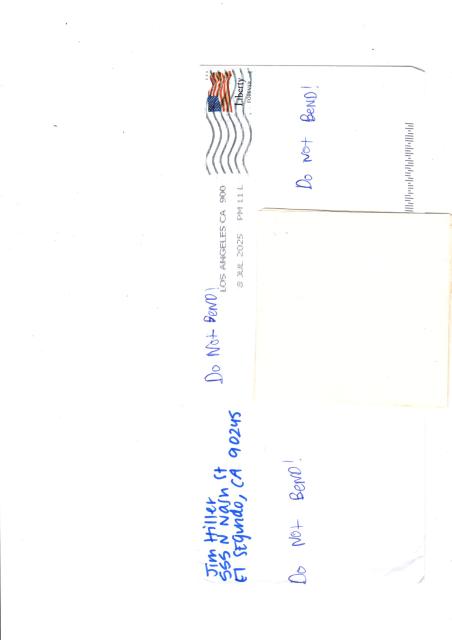 Jim Hiller
555 N Nash St
El Segundo, CA 90245
Do Not Bend!
LOS ANGELES CA 900
8 JUL 2025 PM 11 L
Liberty
FOREVER
Do Not Bend!
Do Not Bend!